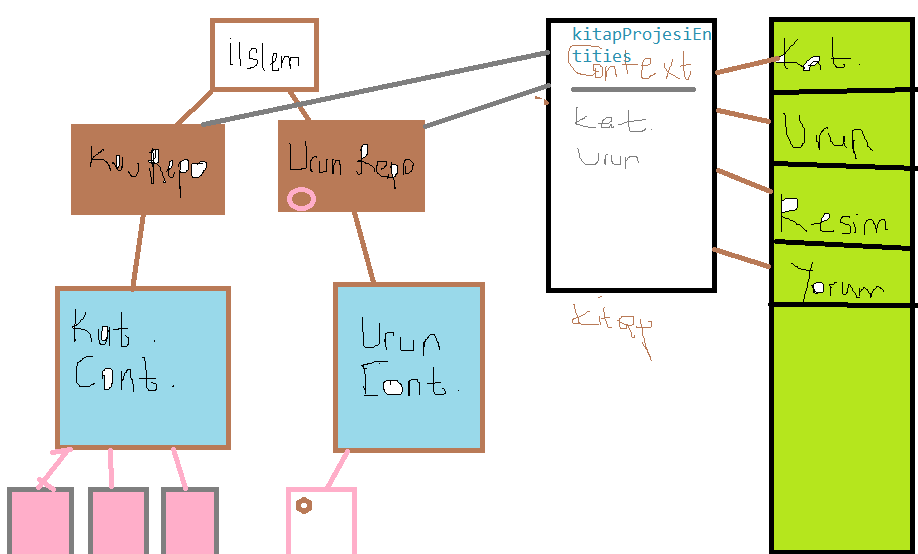 iislem
Kat Repo
Urun Repo
Kat.
Cont.
Urun
Cont.
kitapProjesiEn
tities
Context
Kat.
Urun
Kitap
Kat.
Urun
Resim
Yorum